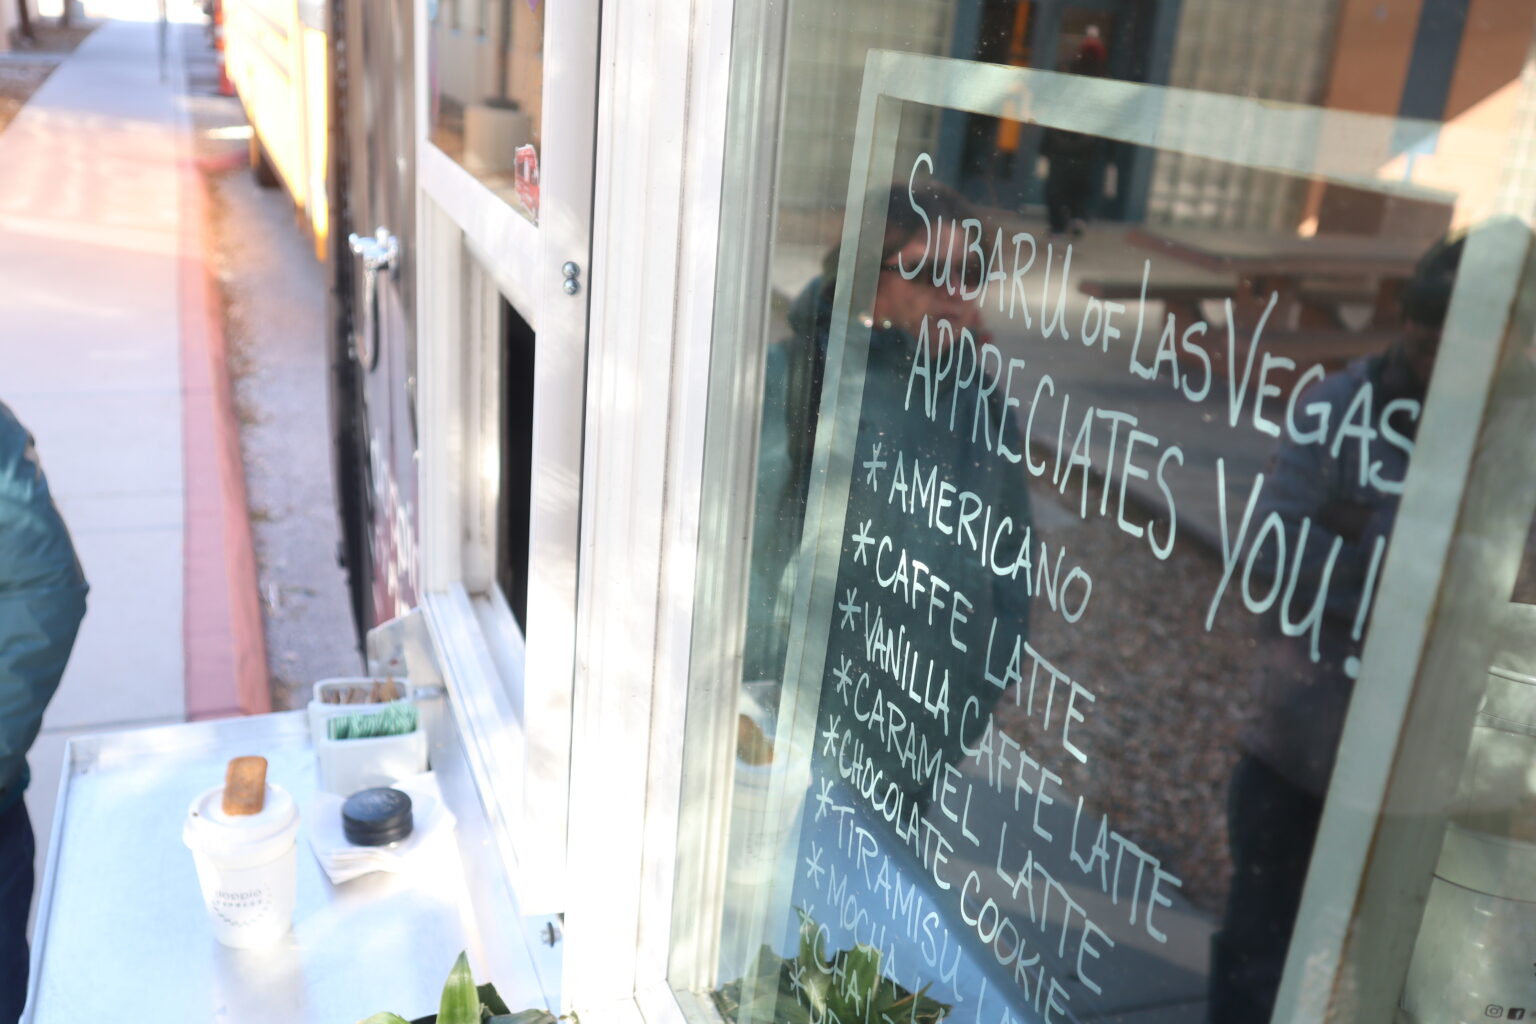 SUBARU OF LAS VEGAS
APPRECIATES YOU!
*AMERICANO
*CAFFE LATTE
*VANILLA CAFFE LATTE
*CARAMEL LATTE
*CHOCOLATE COOKIE
*TIRAMISU
*MOCHA
*CHAI